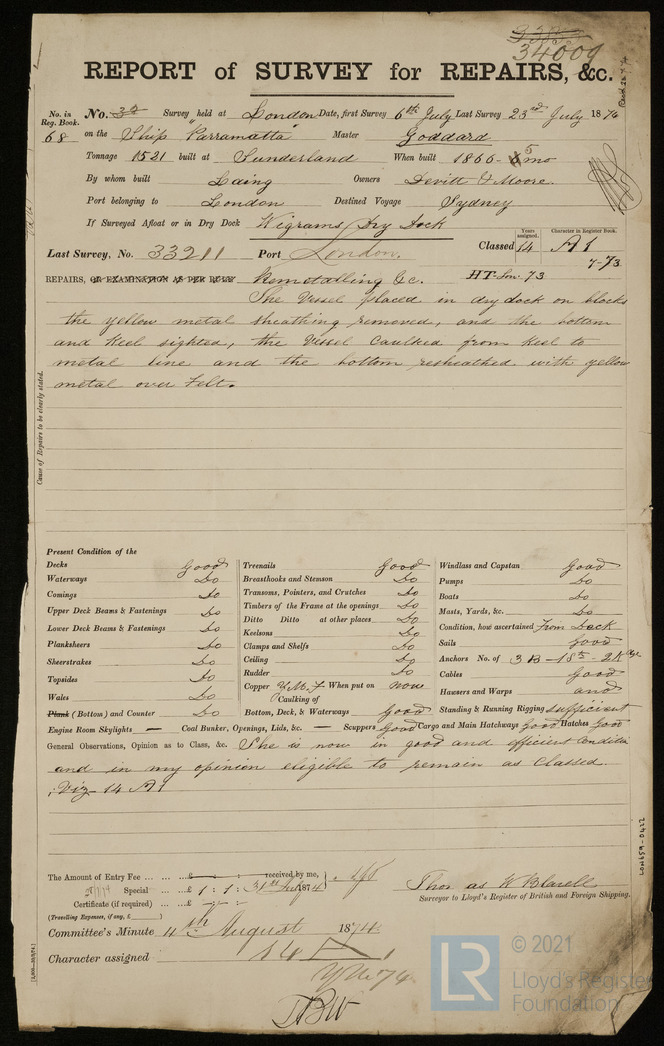 34009
REPORT of SURVEY for REPAIRS, &c.
No. in Reg. Book. No. Survey held at London Date, first Survey 6th July Last Survey 23rd July 1874
68 on the Ship "Parramatta" Master Goddard
Tonnage 1521 built at Sunderland When built 1866 - 5 mo
By whom built Laing Owners Devitt & Moore.
Port belonging to London Destined Voyage Sydney
If Surveyed Afloat or in Dry Dock Wigrams Dry Dock
Years assigned. Character in Register Book.
Last Survey, No. 33211 Port London. Classed 14 A1
7-73
REPAIRS, OR EXAMINATION AS PER RULE Remetalling &c. 73
The Vessel placed in dry dock on blocks
the yellow metal sheathing removed, and the bottom
and Keel sighted, the Vessel Caulked from Keel to
metal line and the bottom resheathed with yellow
metal over Felt.
Cause of Repairs to be clearly stated.
Present Condition of the
Decks Good
Waterways Do
Comings Do
Upper Deck Beams & Fastenings Do
Lower Deck Beams & Fastenings Do
Planksheers Do
Sheerstrakes Do
Topsides Do
Wales Do
Plank (Bottom) and Counter Do
Treenails Good
Breasthooks and Stemson Do
Transoms, Pointers, and Crutches Do
Timbers of the Frame at the openings Do
Ditto Ditto at other places Do
Keelsons Do
Clamps and Shelfs Do
Ceiling Do
Rudder Do
Copper Y.M. F When put on now
Caulking of
Bottom, Deck, & Waterways Good
Windlass and Capstan Good
Pumps Do
Boats Do
Masts, Yards, &c. Do
Condition, how ascertained From Deck
Sails Good
Anchors No. of 3 B - 1 St - 2 K
Cables Good
Hausers and Warps and
Standing & Running Rigging sufficient
Engine Room Skylights — Coal Bunker, Openings, Lids, &c. — Scuppers Good Cargo and Main Hatchways Good Hatches Good
General Observations, Opinion as to Class, &c. She is now in good and efficient Condition
and in my opinion eligible to remain as Classed.
Viz - 14 A1
The Amount of Entry Fee ... ... £ received by me,
Special ... ...£ 1 : 1 : 31st July 1874
Certificate (if required) ...£
(Travelling Expenses, if any, £ )
Thomas W Blarell
Surveyor to Lloyd's Register of British and Foreign Shipping.
Committee's Minute 4th August 1874
Character assigned 14 A 1
74
LON659-0422
LR
© 2021
Lloyd's Register
Foundation